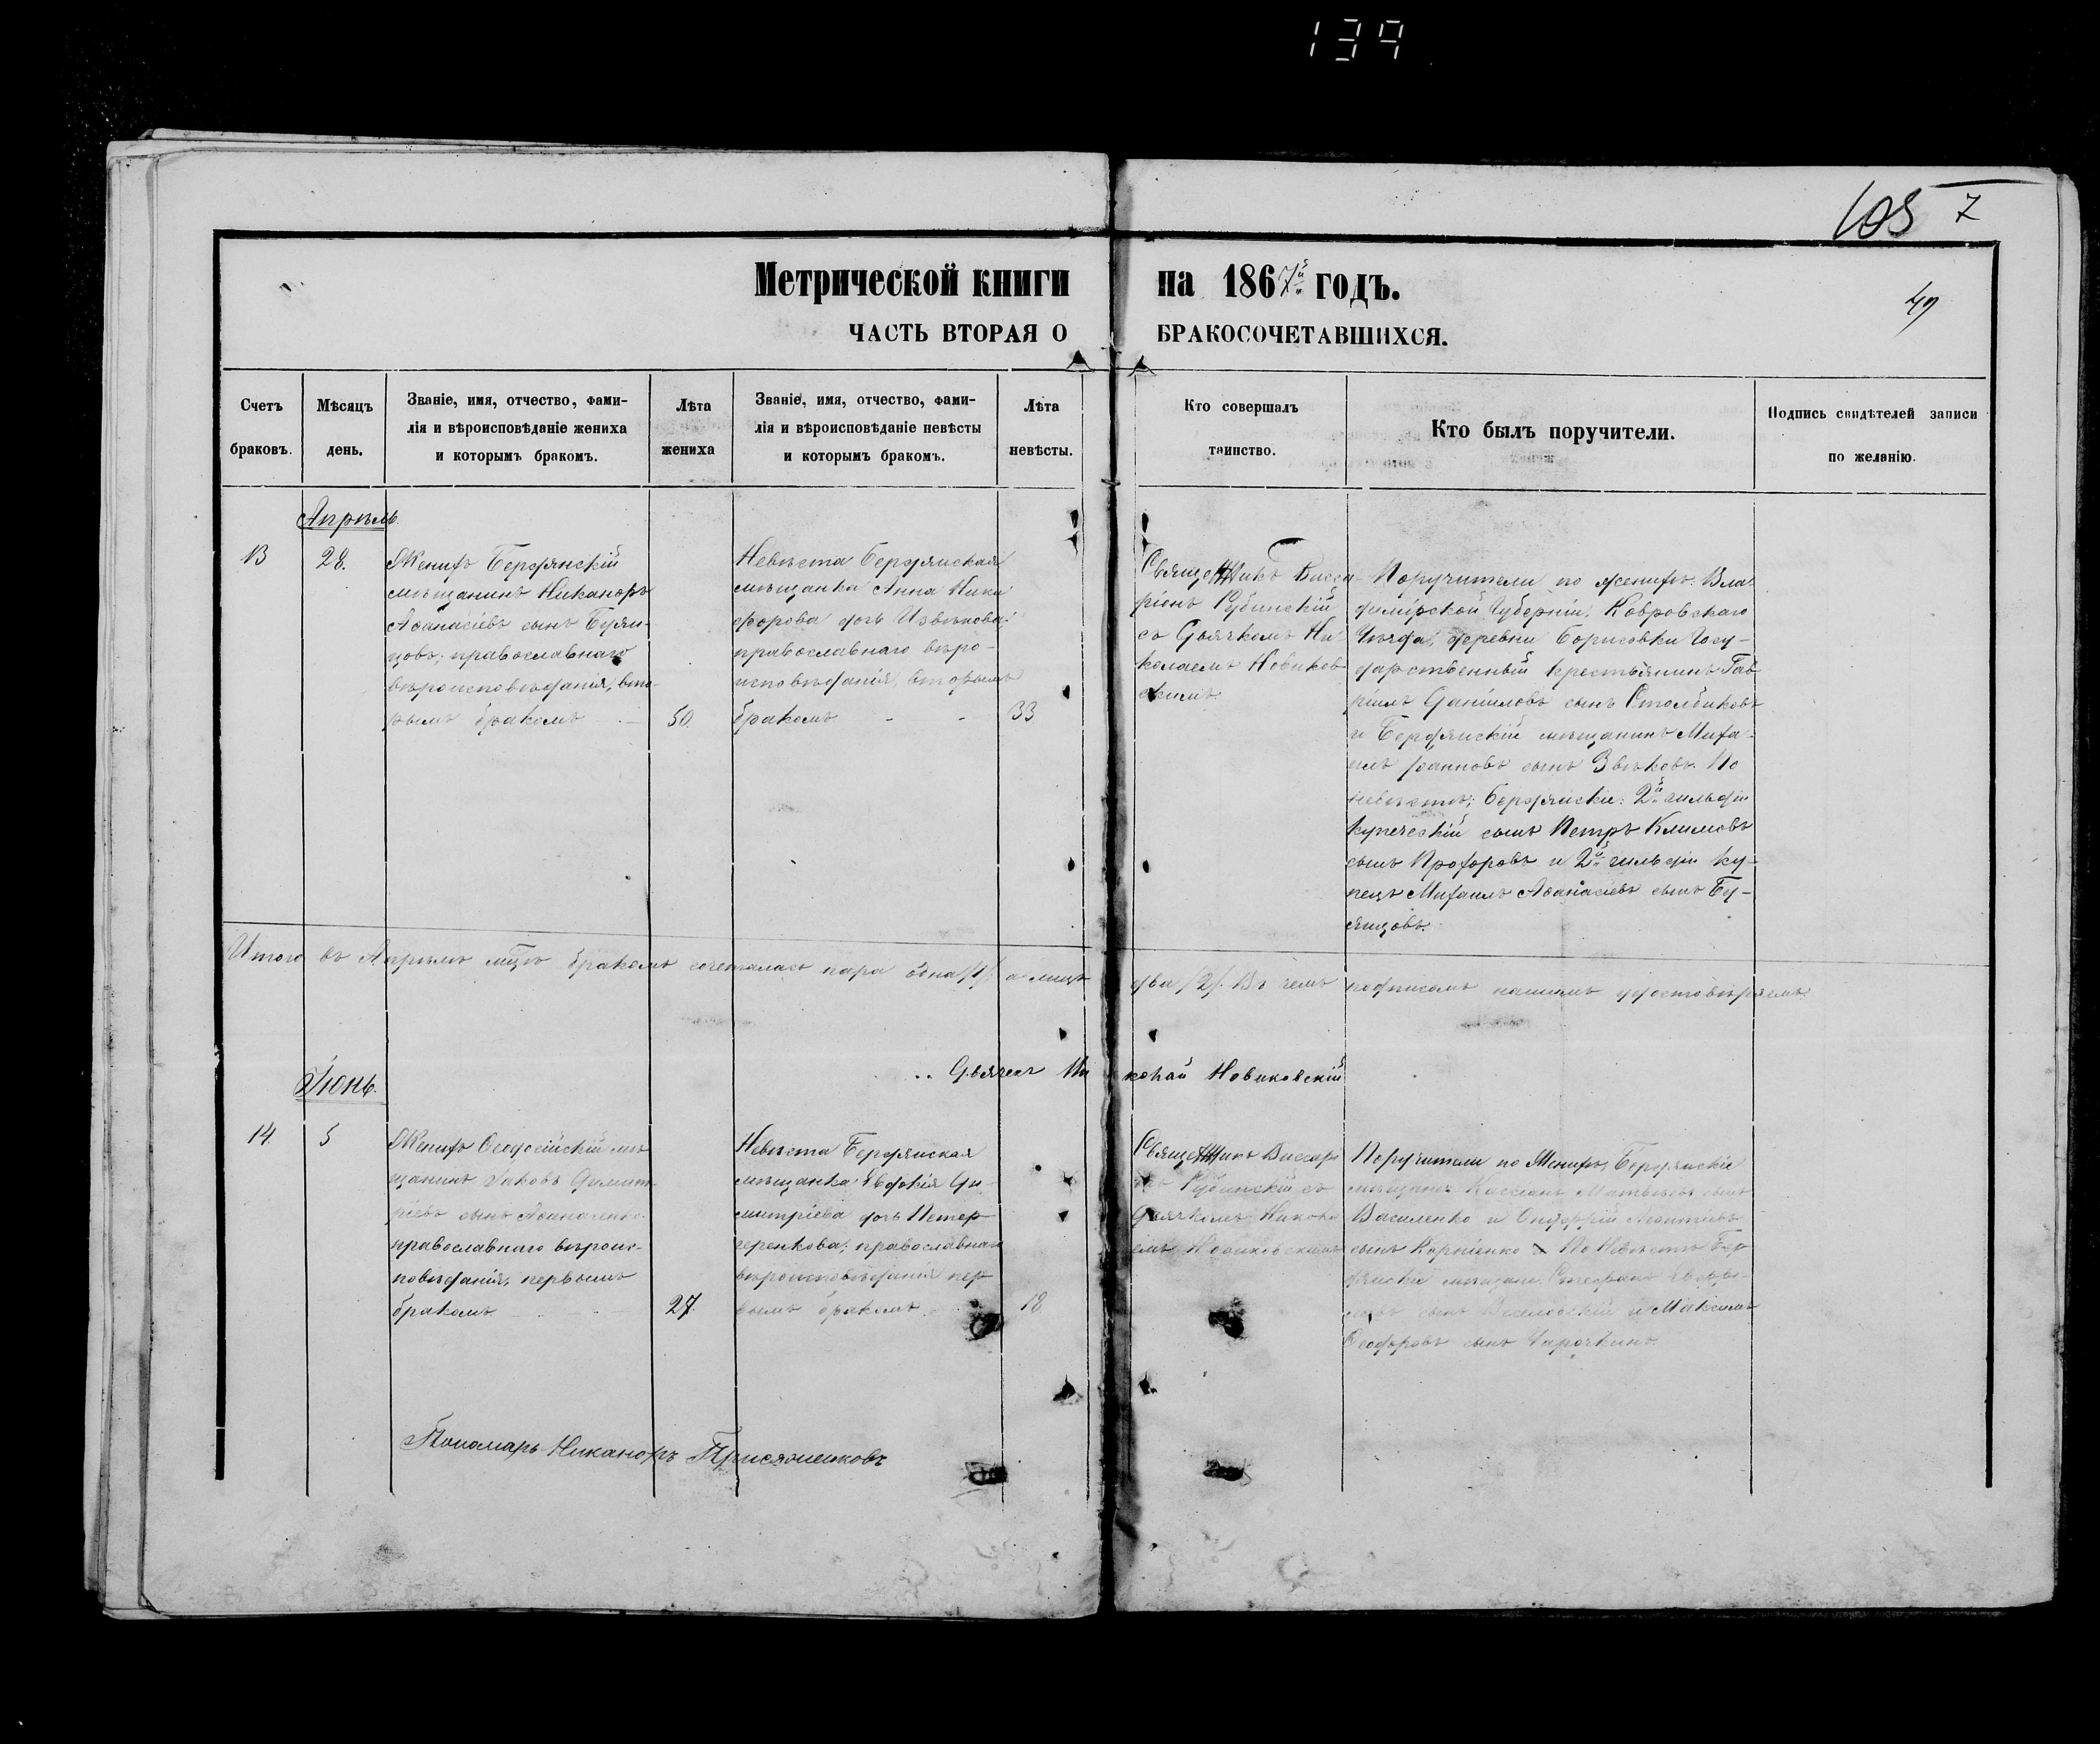 139
105 7
49
Метрической книги на 1867й годъ.
ЧАСТЬ ВТОРАЯ О БРАКОСОЧЕТАВШИХСЯ.
Счетъ браковъ.
Мѣсяцъ день.
Званіе, имя, отчество, фами-
лія и вѣроисповѣданіе жениха
и которымъ бракомъ.
Лѣта жениха
Званіе, имя, отчество, фами-
лія и вѣроисповѣданіе невѣсты
и которымъ бракомъ.
Лѣта невѣсты.
Кто совершалъ
таинство.
Кто былъ поручители.
Подпись свидѣтелей записи
по желанію.
Апрѣль.
13
28.
Женихъ Бердянскій
мѣщанинъ Никаноръ
Аѳанасіевъ сынъ Буян-
цовъ; православнаго
вѣроисповѣданія, вто-
рымъ бракомъ
50.
Невѣста Бердянская
мѣщанка Анна Ники
форова дочь Извѣкова;
православнаго вѣро-
исповѣданія, вторымъ
бракомъ - -
33
Священникъ Висса-
ріонъ Рубинскій
съ Дьячкомъ Ни
колаемъ Новиков
скимъ
Поручители по женихѣ: Вла
димірской Губерніи, Ковровскаго
Уѣзда, деревни Борисовки Госу-
дарственный крестьянинъ Гав
ріилъ Даніиловъ сынъ Столбиковъ
и Бердянскій мѣщанинъ Миха-
илъ Іоанновъ сынъ Звѣковъ. По
невѣстѣ; Бердянскіе: 2й гильдіи
купеческій сынъ Петръ Климовъ
сынъ Прохоровъ и 2й гильдіи ку-
пецъ Михаилъ Аѳанасіевъ сынъ Бу-
янцовъ.
Итого въ Апрѣлѣ мцѣ бракомъ сочеталась пара одна /1/. а лицъ два /2/. Въ чемъ подписомъ нашимъ удостовѣряемъ.
Дьячекъ Николай Новиковскій
Іюнь.
14.
5
Женихъ Ѳеодосійскій мѣ
щанинъ Іаковъ Димит-
ріевъ сынъ Аѳанасенко
православнаго вѣроис-
повѣданія, первымъ
бракомъ
27.
Невѣста Бердянская
мѣщанка Евдокія Ди-
митріева дочь Петер
черенкова; православнаго
вѣроисповѣданія пер
вымъ бракомъ
18
Священникъ Виссарі
онъ Рубинскій съ
Дьячкомъ Никола
емъ Новиковскимъ
Поручители по Женихѣ, Бердянскіе
мѣщане: Кассіанъ Матвѣевъ сынъ
Василенко и Онуфрій Леонтіевъ
сынъ Корніенко По Невѣстѣ Бер
дянскіе мѣщане: Стефанъ
сынъ и Максимъ
Ѳеодоровъ сынъ
Пономарь Никаноръ Присяжнековъ